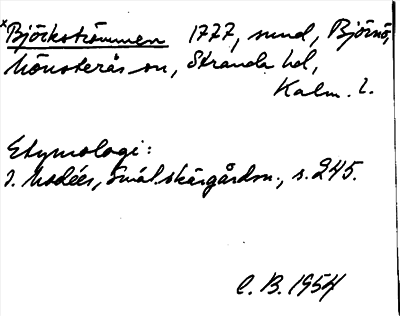 × Björkströmmen 1777, sund, Björnö,
Mönsterås sn, Stranda hd,
Kalm. l.
Etymologi:
J. Modéer, Smål. skärgårdsn., s. 245.
C. B. 1954